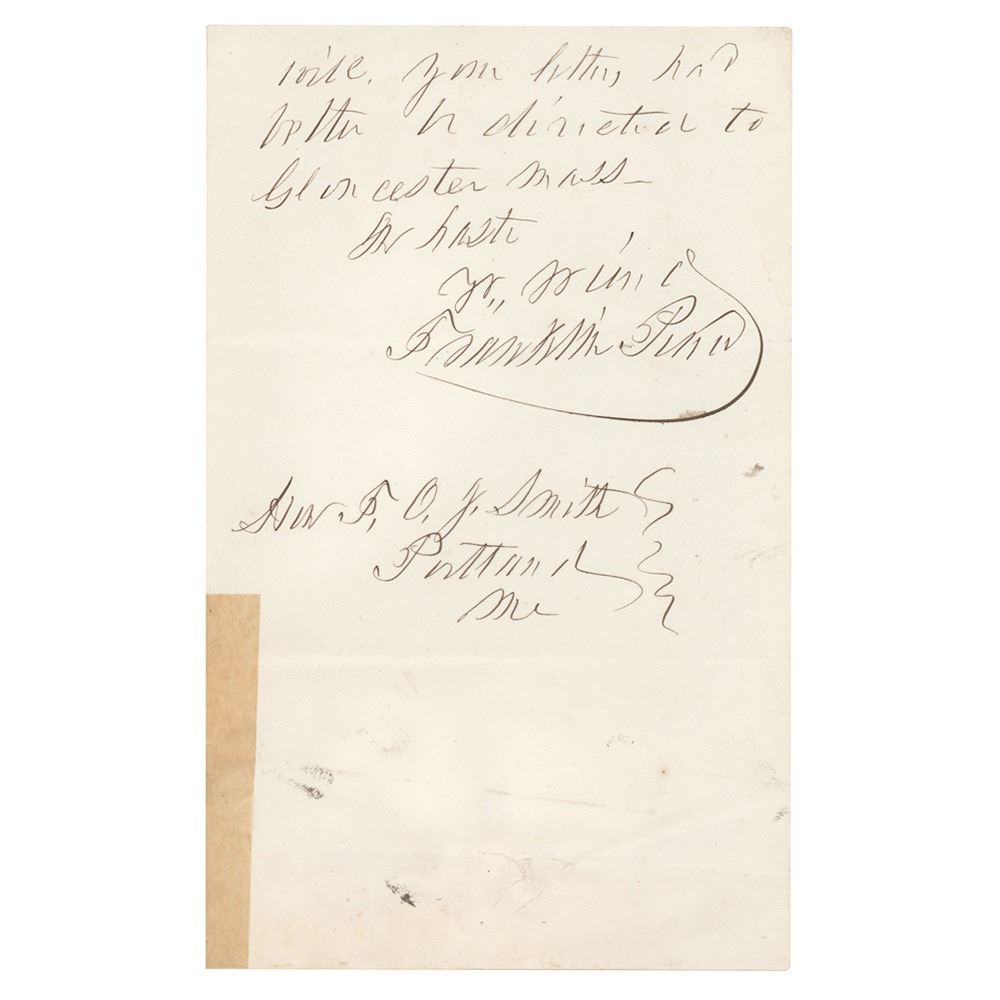 will. Your letters had
better be directed to
Gloucester Mass—
In haste
Yr,, friend
Franklin Pierce
Hon F. O. J. Smith
Portland
Me